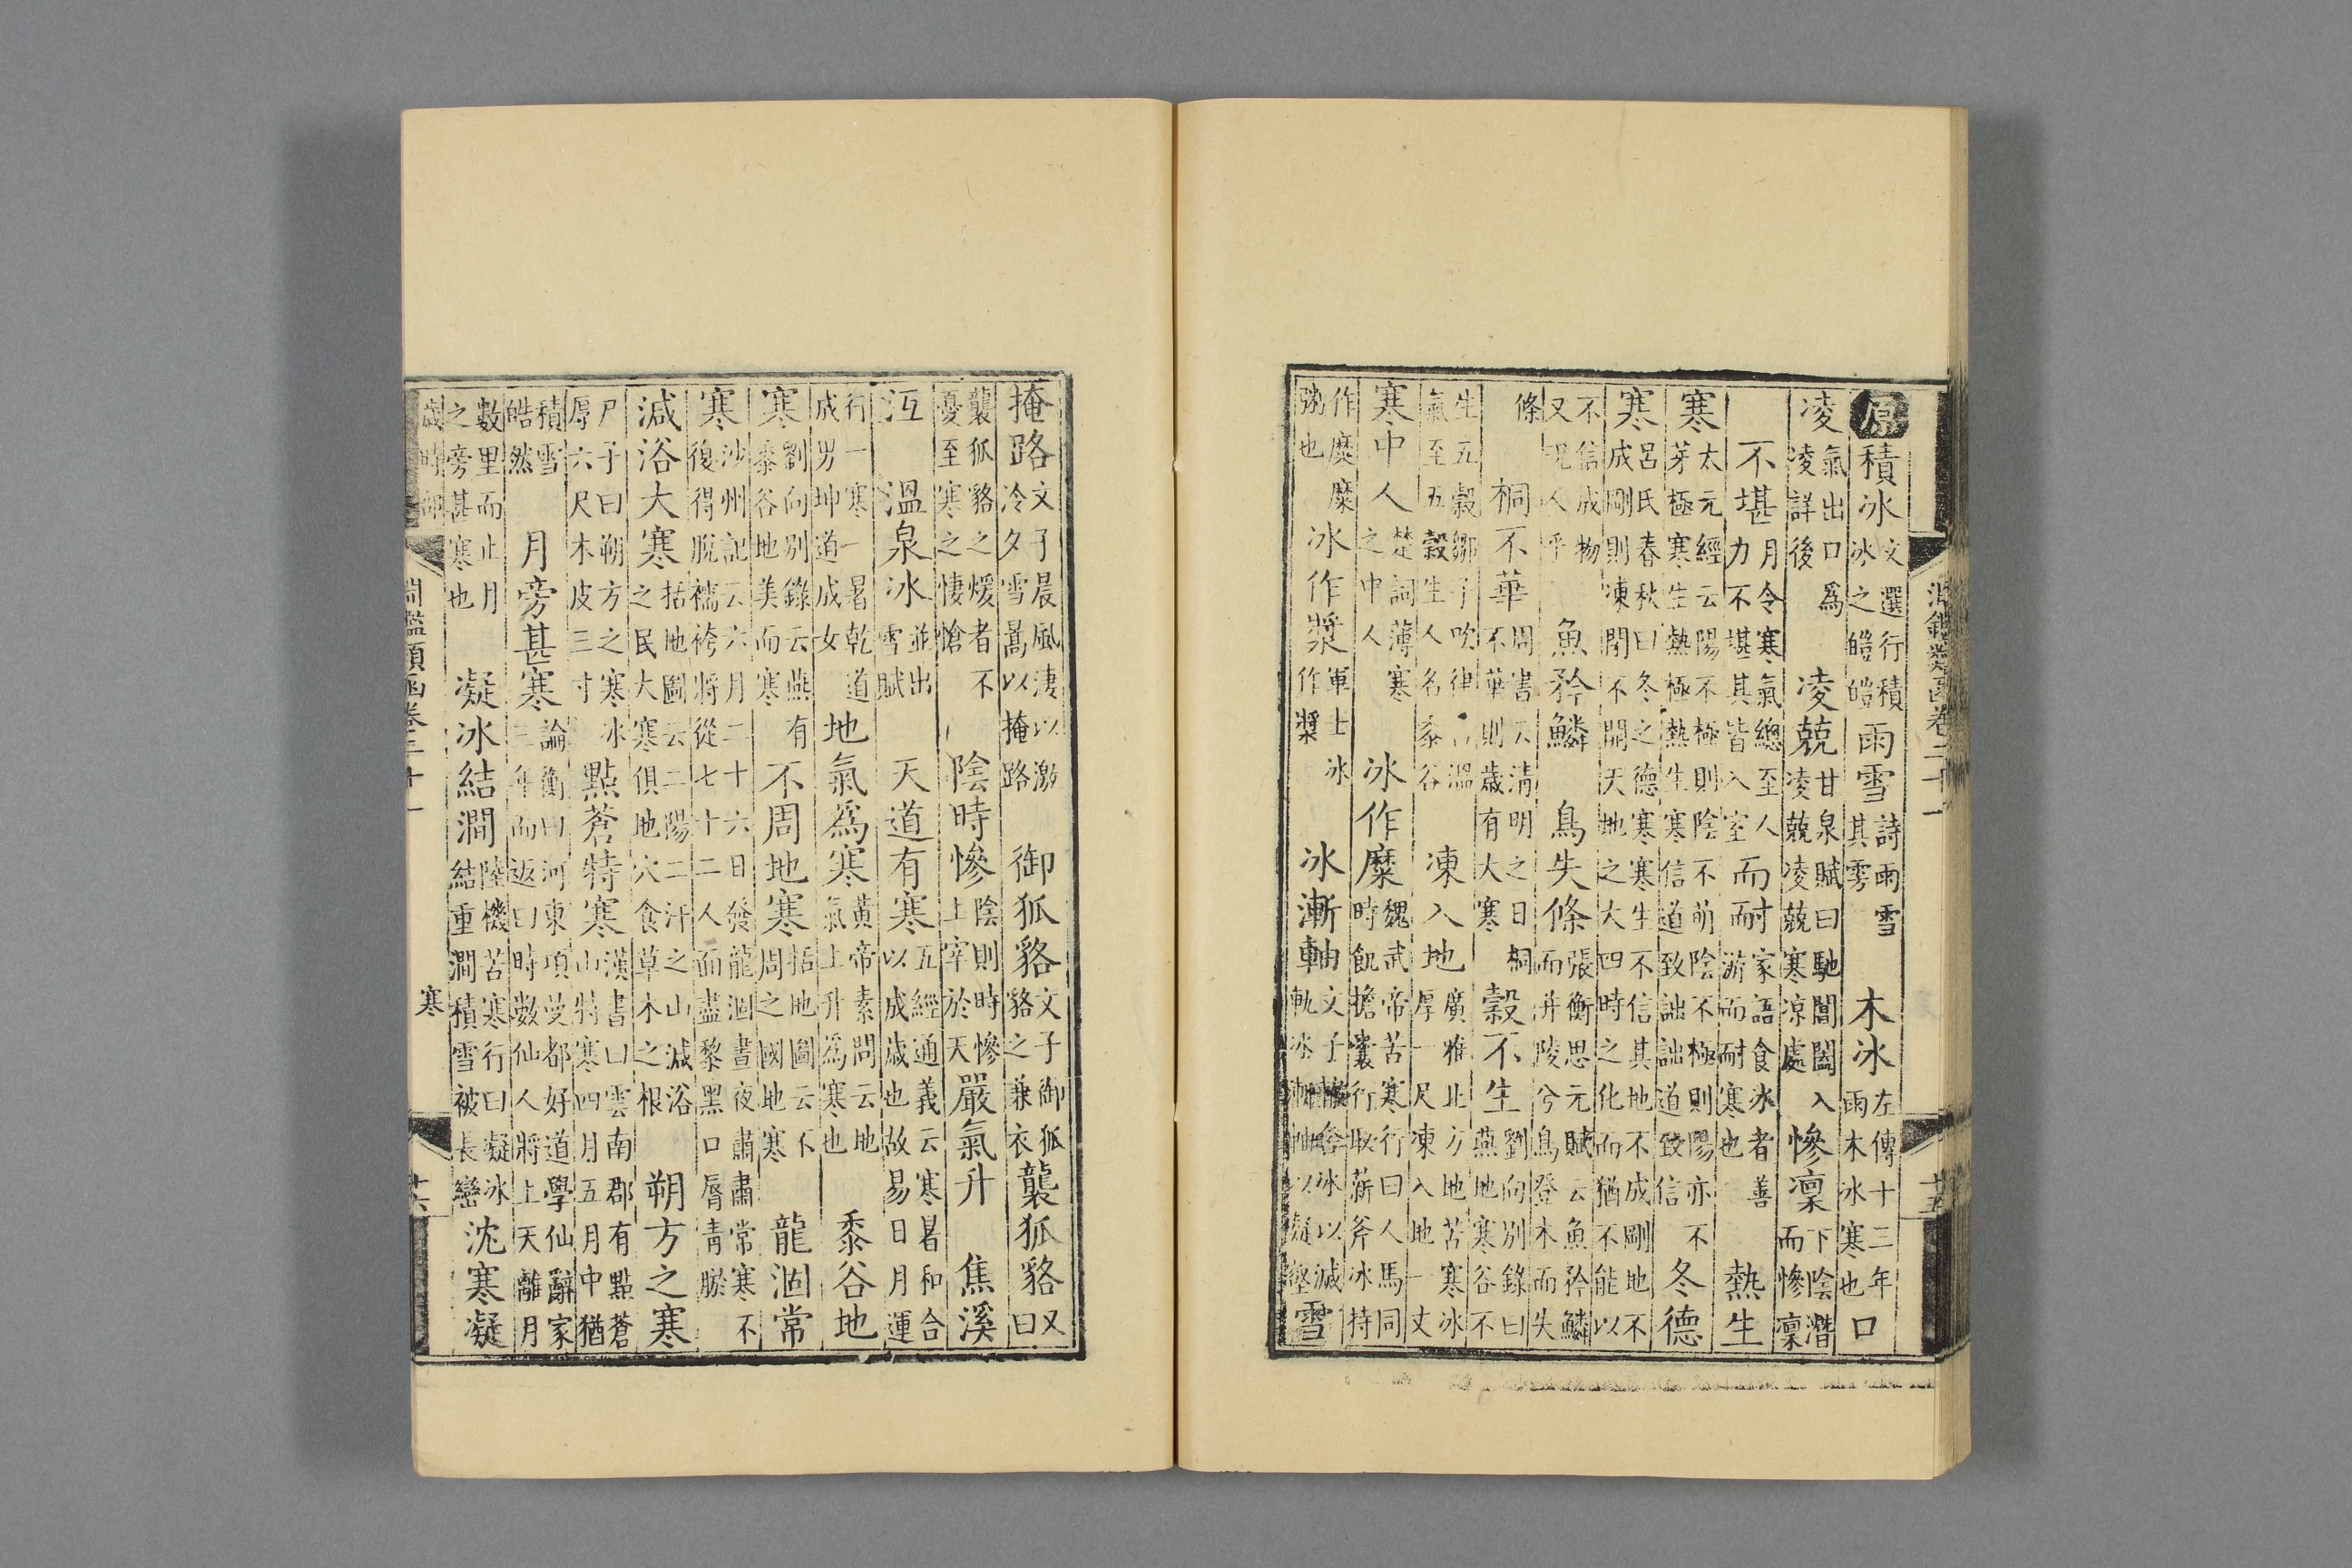 淵鑑類函卷二十一 十五
原積冰文選行積冰之皚皚雨雪詩雨雪其雱木冰左傳十三年雨木冰寒也口
凌氣出口爲凌詳後凌兢甘泉賦曰馳閶闔入凌兢凌兢寒凉處慘凜下陰潛而慘凜
不堪月令寒氣總至人力不堪其皆入室而耐家語食冰者善游而耐寒也熱生
寒太元經云陽不極則陰不萌陰不極則陽亦不芽極寒生熱極熱生寒信道致詘詘道致信冬德
寒呂氏春秋曰冬之德寒寒生不信其地不成剛地不成剛則凍閉不開天地之大四時之化而猶不能以
不信成物又况人乎魚矜鱗鳥失條張衡思元賦云魚矜鱗而并陵兮鳥登木而失
條桐不華周書云清明之日桐不華則歲有大寒穀不生劉向別錄曰燕地寒谷不
生五穀鄒子吹律溫氣至五穀生人名黍谷凍入地廣雅北方地苦寒冰厚一尺凍入地一丈
寒中人楚詞薄寒之中人冰作糜魏武帝苦寒行曰人馬同時飢擔囊行取薪斧冰持
作糜糜粥也冰作漿軍士冰作漿冰漸軸文子含冰以滅軌冰漸軸以凝壑雪
掩路文子晨風淒以激冷夕雪暠以掩路御狐貉文子御狐貉之兼衣襲狐貉又曰
襲狐貉之煖者不憂至寒之悽愴陰時慘陰則時慘上宰於天嚴氣升焦溪
沍溫泉冰並出雪賦天道有寒五經通義云寒暑和合以成歲也故易日月運
行一寒一暑乾道成男坤道成女地氣爲寒黃帝素問云地氣上升爲寒也黍谷地
寒劉向別錄云燕有黍谷地美而寒不周地寒括地圖云不周之國地寒龍涸常
寒沙州記云六月二十六日發龍涸晝夜肅肅常寒不復得脫襦袴將從七十二人面盡黎黑口脣青瘀
減浴大寒括地圖云二陽二汗之山減浴之民大寒俱地穴食草木之根朔方之寒
尸子曰朔方之寒冰厚六尺木皮三寸點蒼特寒漢書曰雲南郡有點蒼山特寒四月五月中猶
積雪皓然月旁甚寒論衡曰河東項曼都好道學仙辭家三年而返曰時數仙人將上天離月
數里而止月之旁甚寒也凝冰結澗陸機苦寒行曰凝冰結重澗積雪被長巒沈寒凝
歲時部 淵鑑類函卷二十一 寒 十六